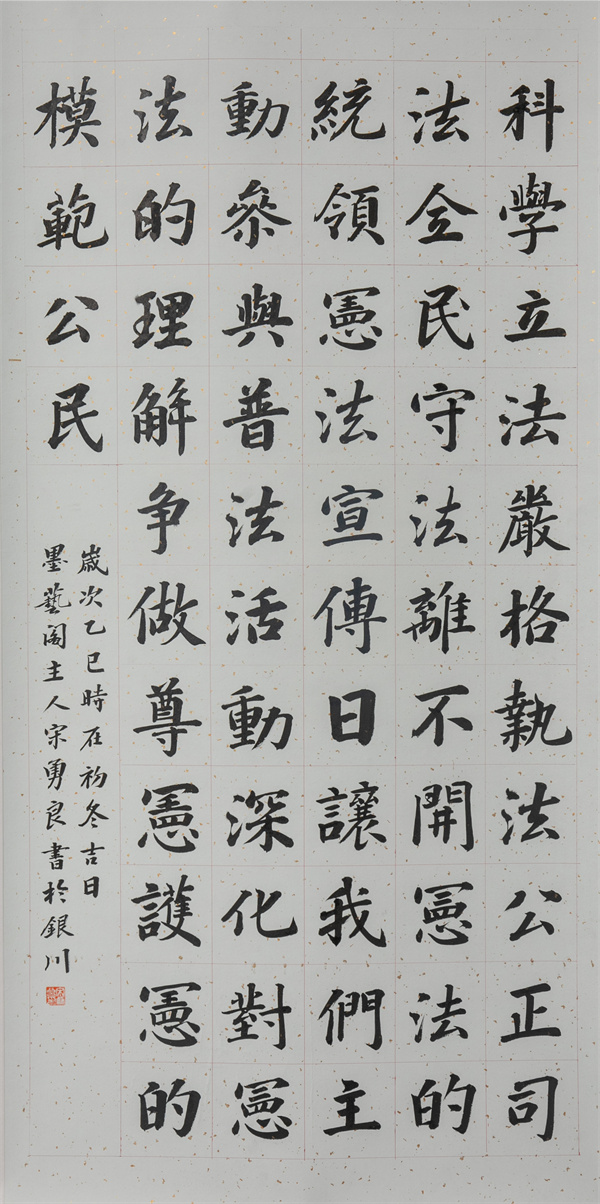 科學立法嚴格執法公正司
法全民守法離不開憲法的
統領憲法宣傳日讓我們主
動參與普法活動深化對憲
法的理解争做尊憲護憲的
模範公民
歲次乙巳時在初冬吉日
墨藝阁主人宋勇良書於銀川